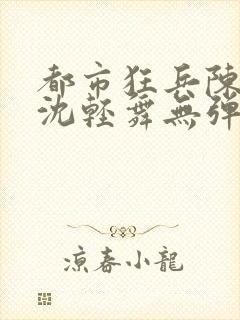 都市狂兵陳
沈輕舞無彈
涼春小龍